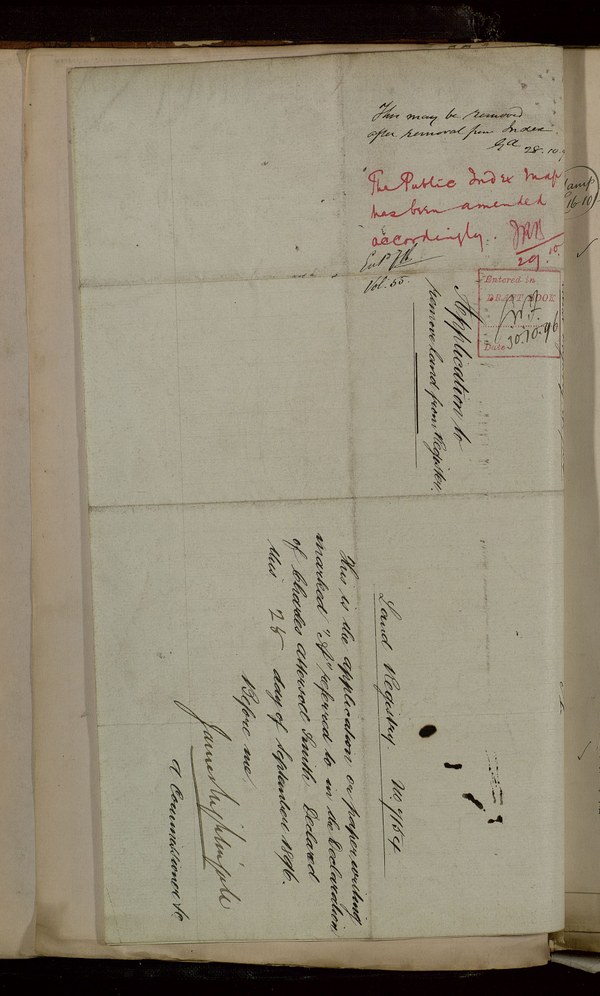 This may be removed
after removal from Index
28.10.
The Public Index Map
has been amended
accordingly.
29.10.
Vol. 55.
Entered in
DRAFT BOOK
Date 30.10.96
Application to
remove land from Register.
Land Registry No.
This is the application or paper writing
marked "A" referred to in the Declaration
of Charles Attersoll Smith Declared
this 25 day of September 1896.
Before me
A Commissioner &c
16.10